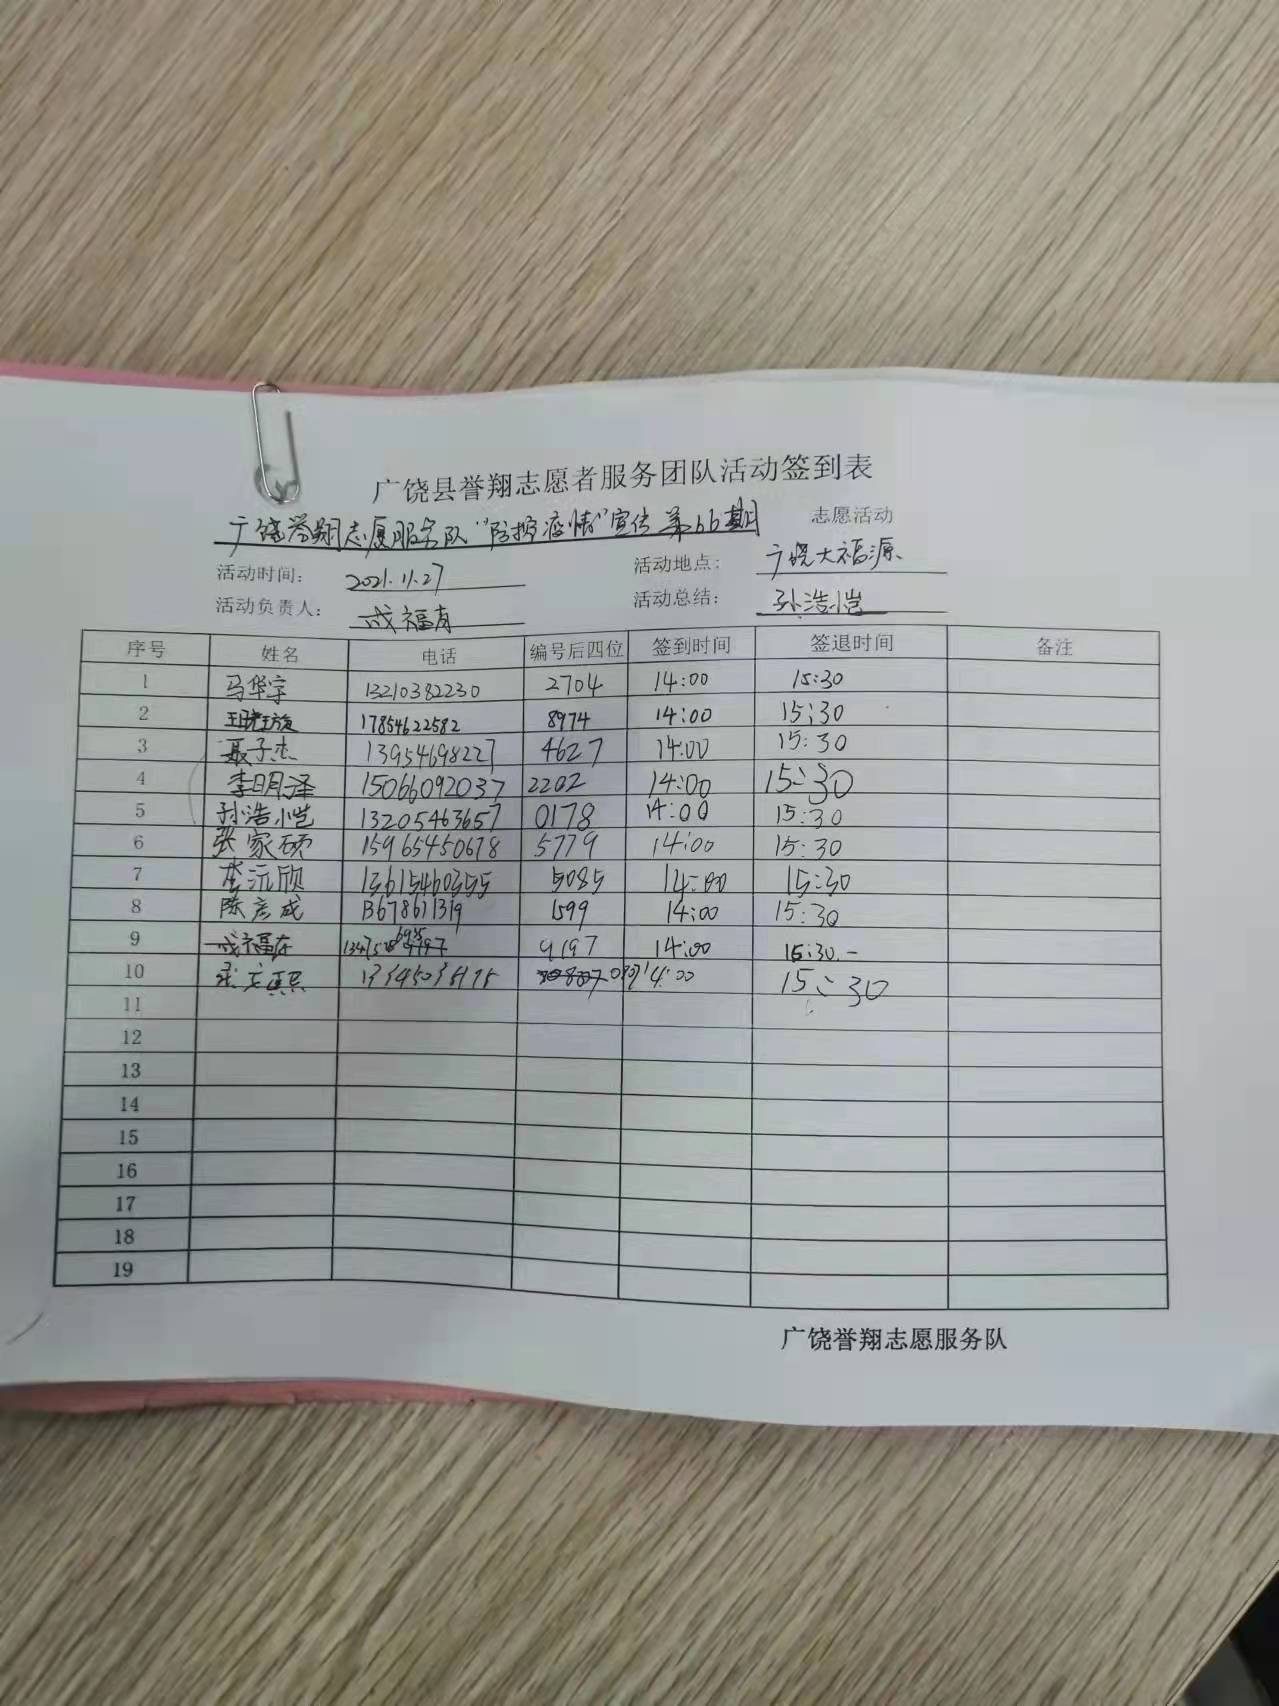 广饶县誉翔志愿者服务团队活动签到表
广饶誉翔志愿服务队“防控疫情”宣传第66期 志愿活动
活动时间： 2021.11.27 活动地点： 广饶大福源
活动负责人： 成福存 活动总结： 孙浩恺
序号 姓名 电话 编号后四位 签到时间 签退时间 备注
1 马华宇 13210382230 2704 14:00 15:30
2 17854622582 8974 14:00 15:30
3 聂子杰 13954698227 4627 14:00 15:30
4 李明泽 15066092037 2202 14:00 15:30
5 孙浩恺 13205463657 0178 14:00 15:30
6 张家硕 15965450678 5779 14:00 15:30
7 李沅欣 13615460355 5085 14:00 15:30
8 陈彦成 13678611319 1599 14:00 15:30
9 成福存 9197 14:00 15:30
10 14:00 15:30
11
12
13
14
15
16
17
18
19
广饶誉翔志愿服务队